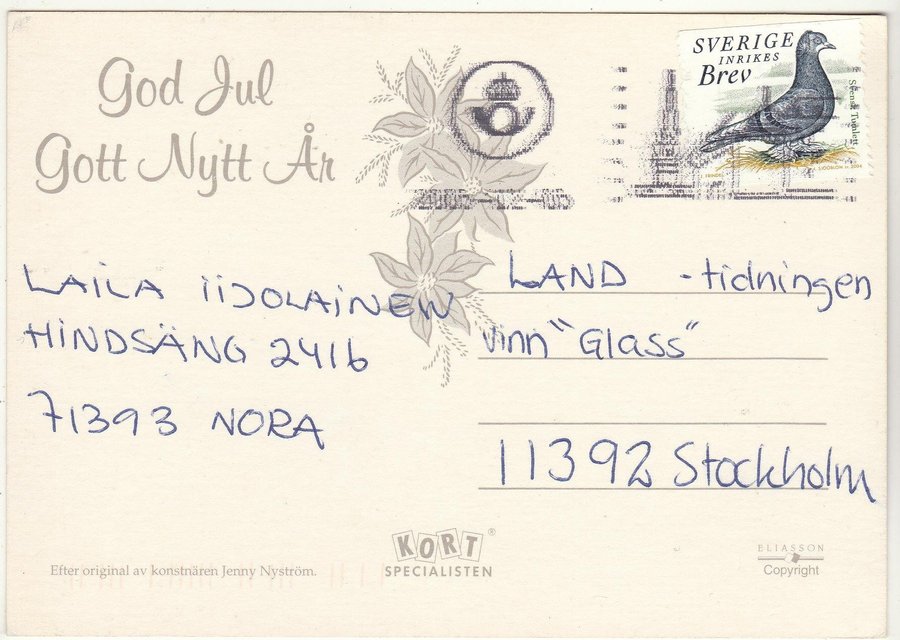 God Jul
Gott Nytt År
SVERIGE
INRIKES
Brev
Svensk Tumlett
LAILA IIDOLAINEN
HINDSÄNG 2416
71393 NORA
LAND -tidningen
vinn "Glass"
11392 Stockholm
Efter original av konstnären Jenny Nyström.
KORT®
SPECIALISTEN
ELIASSON
Copyright